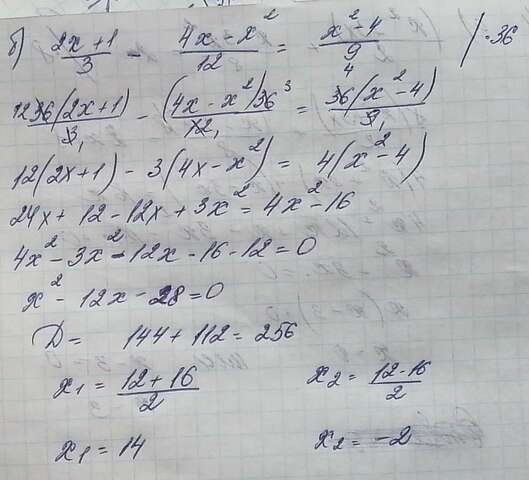 б) (2x + 1)/3 - (4x - x²)/12 = (x² - 4)/9 | · 36
36(2x+1)/3 - (4x - x²)36/12 = 36(x² - 4)/9
12(2x+1) - 3(4x - x²) = 4(x² - 4)
24x + 12 - 12x + 3x² = 4x² - 16
4x² - 3x² - 12x - 16 - 12 = 0
x² - 12x - 28 = 0
D = 144 + 112 = 256
x₁ = (12 + 16)/2 x₂ = (12 - 16)/2
x₁ = 14 x₂ = -2